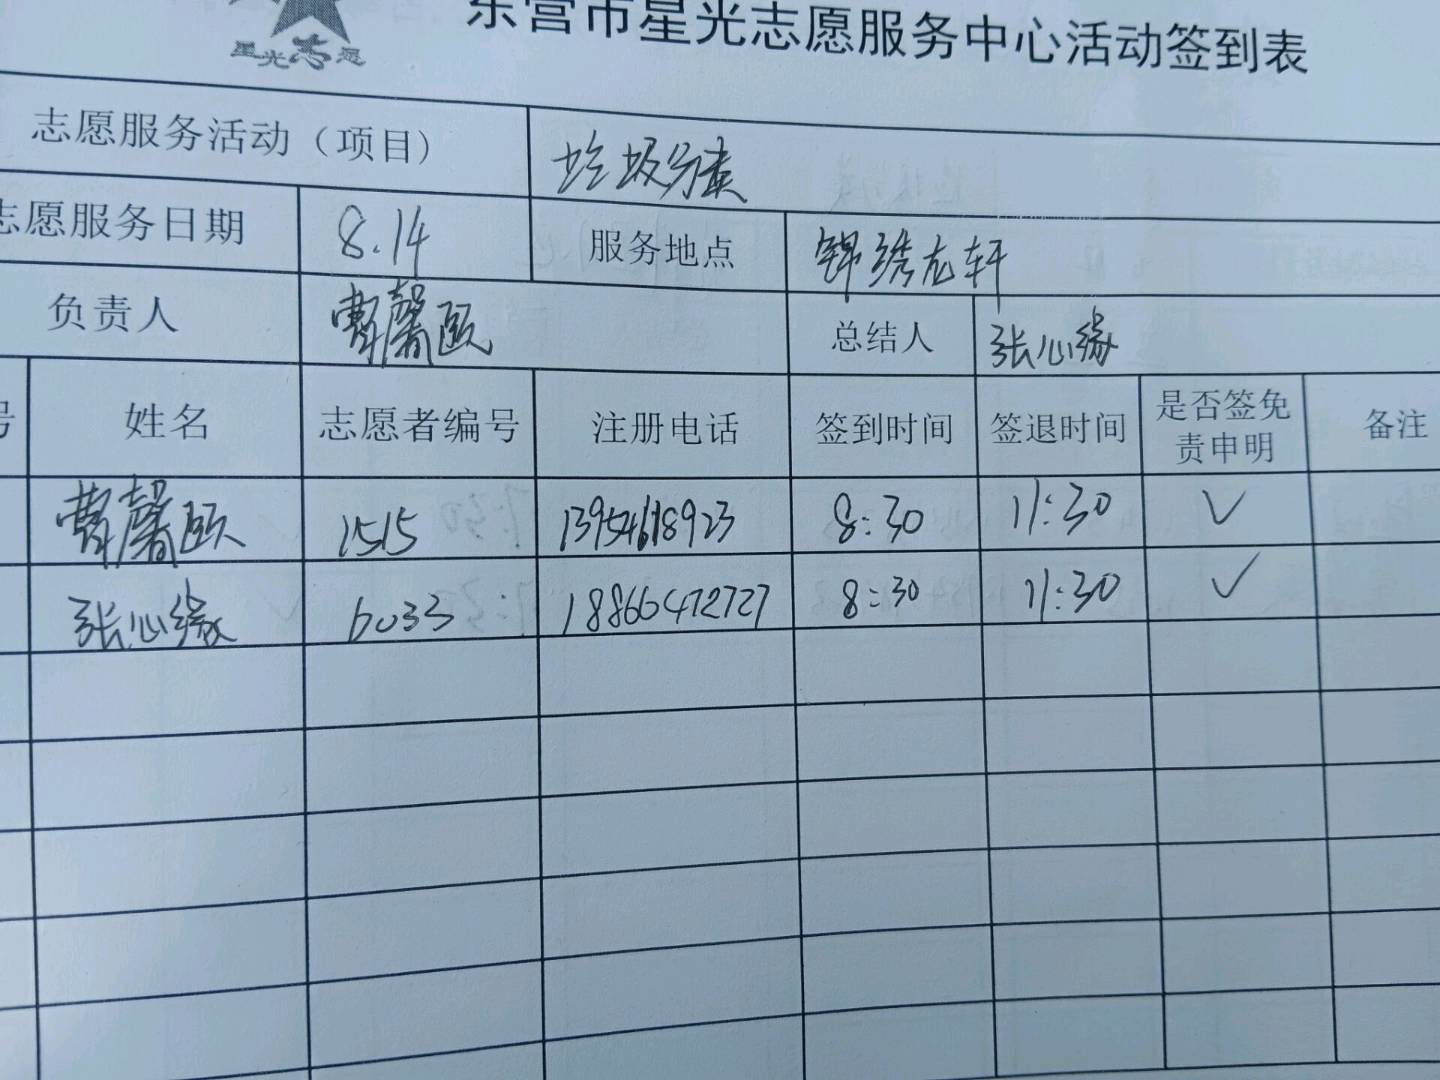 星光志愿
东营市星光志愿服务中心活动签到表
志愿服务活动（项目） 垃圾分类
志愿服务日期 8.14 服务地点 锦绣龙轩
负责人 曹馨 总结人 张心缘
号 姓名 志愿者编号 注册电话 签到时间 签退时间 是否签免
责申明 备注
曹馨 1515 13954618923 8:30 11:30 ✓
张心缘 6033 18866472727 8:30 11:30 ✓